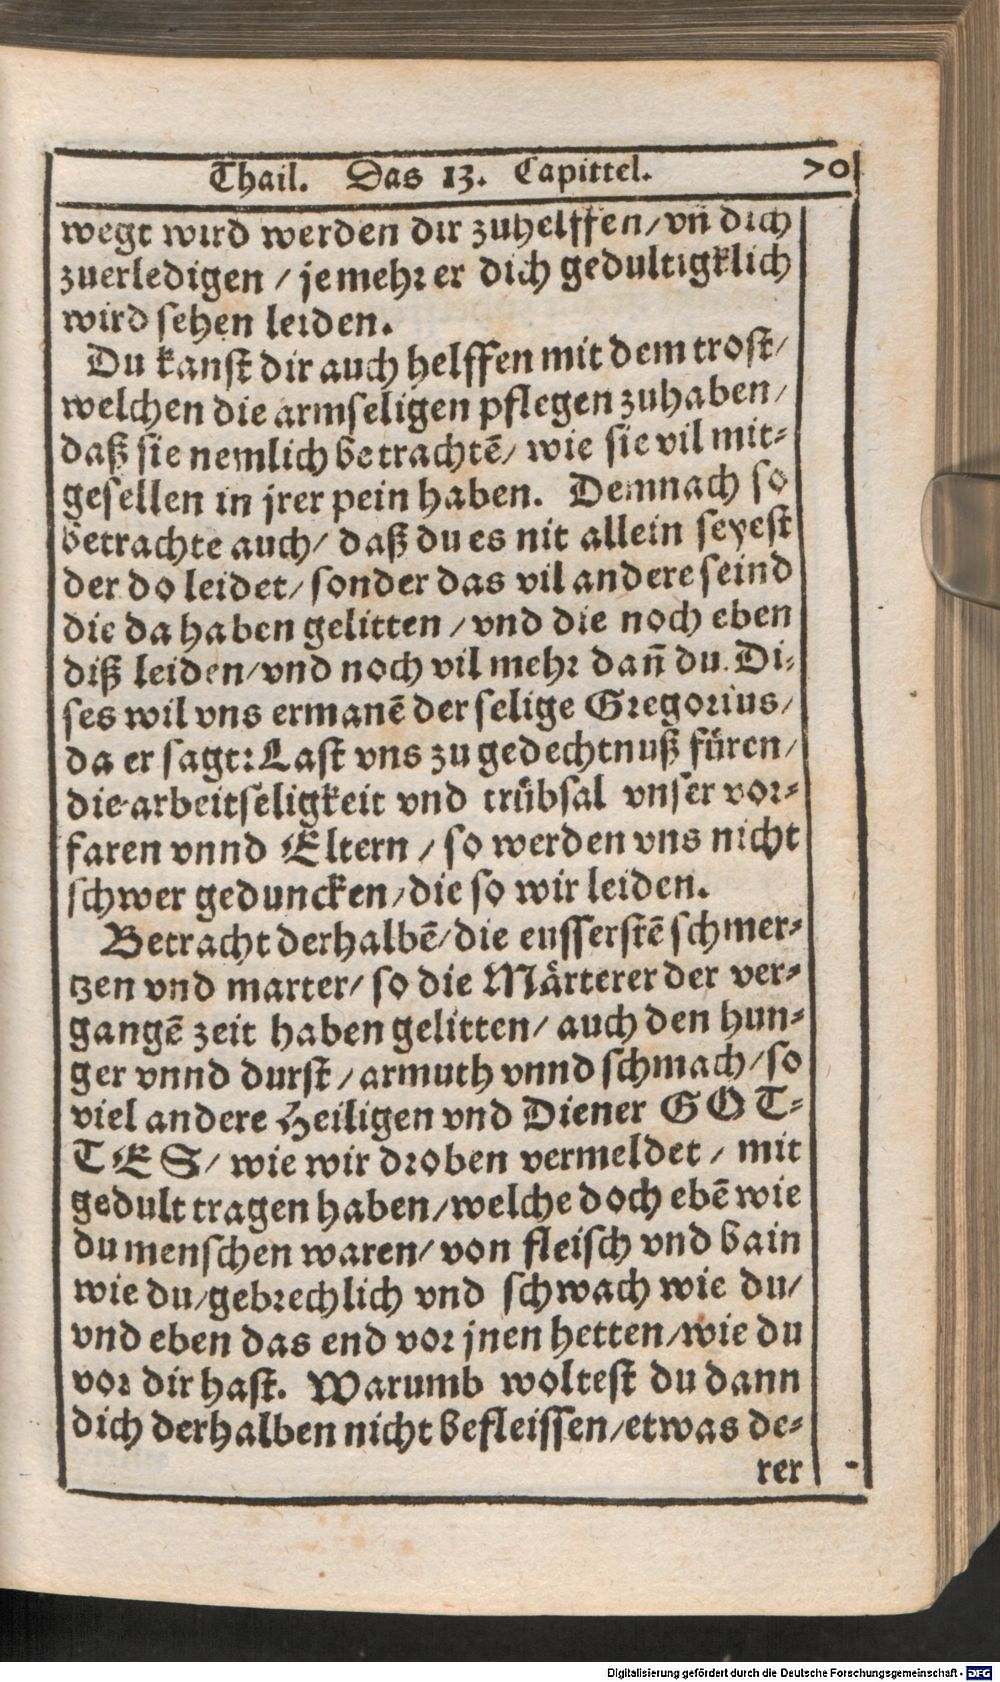 Thail. Das 13. Capittel. 70
wegt wird werden dir zuhelffen/ vñ dich
zuerledigen / je mehr er dich gedultigklich
wird sehen leiden.
Du kanst dir auch helffen mit dem trost/
welchen die armseligen pflegen zuhaben/
daß sie nemlich betrachtẽ/ wie sie vil mit-
gesellen in jrer pein haben. Demnach so
betrachte auch/ daß du es nit allein seyest
der do leidet/ sonder das vil andere seind
die da haben gelitten / vnd die noch eben
diß leiden/ vnd noch vil mehr dañ du. Di-
ses wil vns ermanẽ der selige Gregorius/
da er sagt: Last vns zu gedechtnuß füren/
die arbeitseligkeit vnd trübsal vnser vor-
faren vnnd Eltern / so werden vns nicht
schwer geduncken/ die so wir leiden.
Betracht derhalbẽ/ die eussersTẽ schmer-
tzen vnd marter/ so die Märterer der ver-
gangẽ zeit haben gelitten/ auch den hun-
ger vnnd durst / armuth vnnd schmach/ so
viel andere Heiligen vnd Diener GOT-
TES/ wie wir droben vermeldet / mit
gedult tragen haben/ welche doch ebẽ wie
du menschen waren/ von fleisch vnd bain
wie du/ gebrechlich vnd schwach wie du/
vnd eben das end vor jnen hetten/ wie du
vor dir hast. Warumb woltest du dann
dich derhalben nicht befleissen/ etwas de-
rer
Digitalisierung gefördert durch die Deutsche Forschungsgemeinschaft - DFG